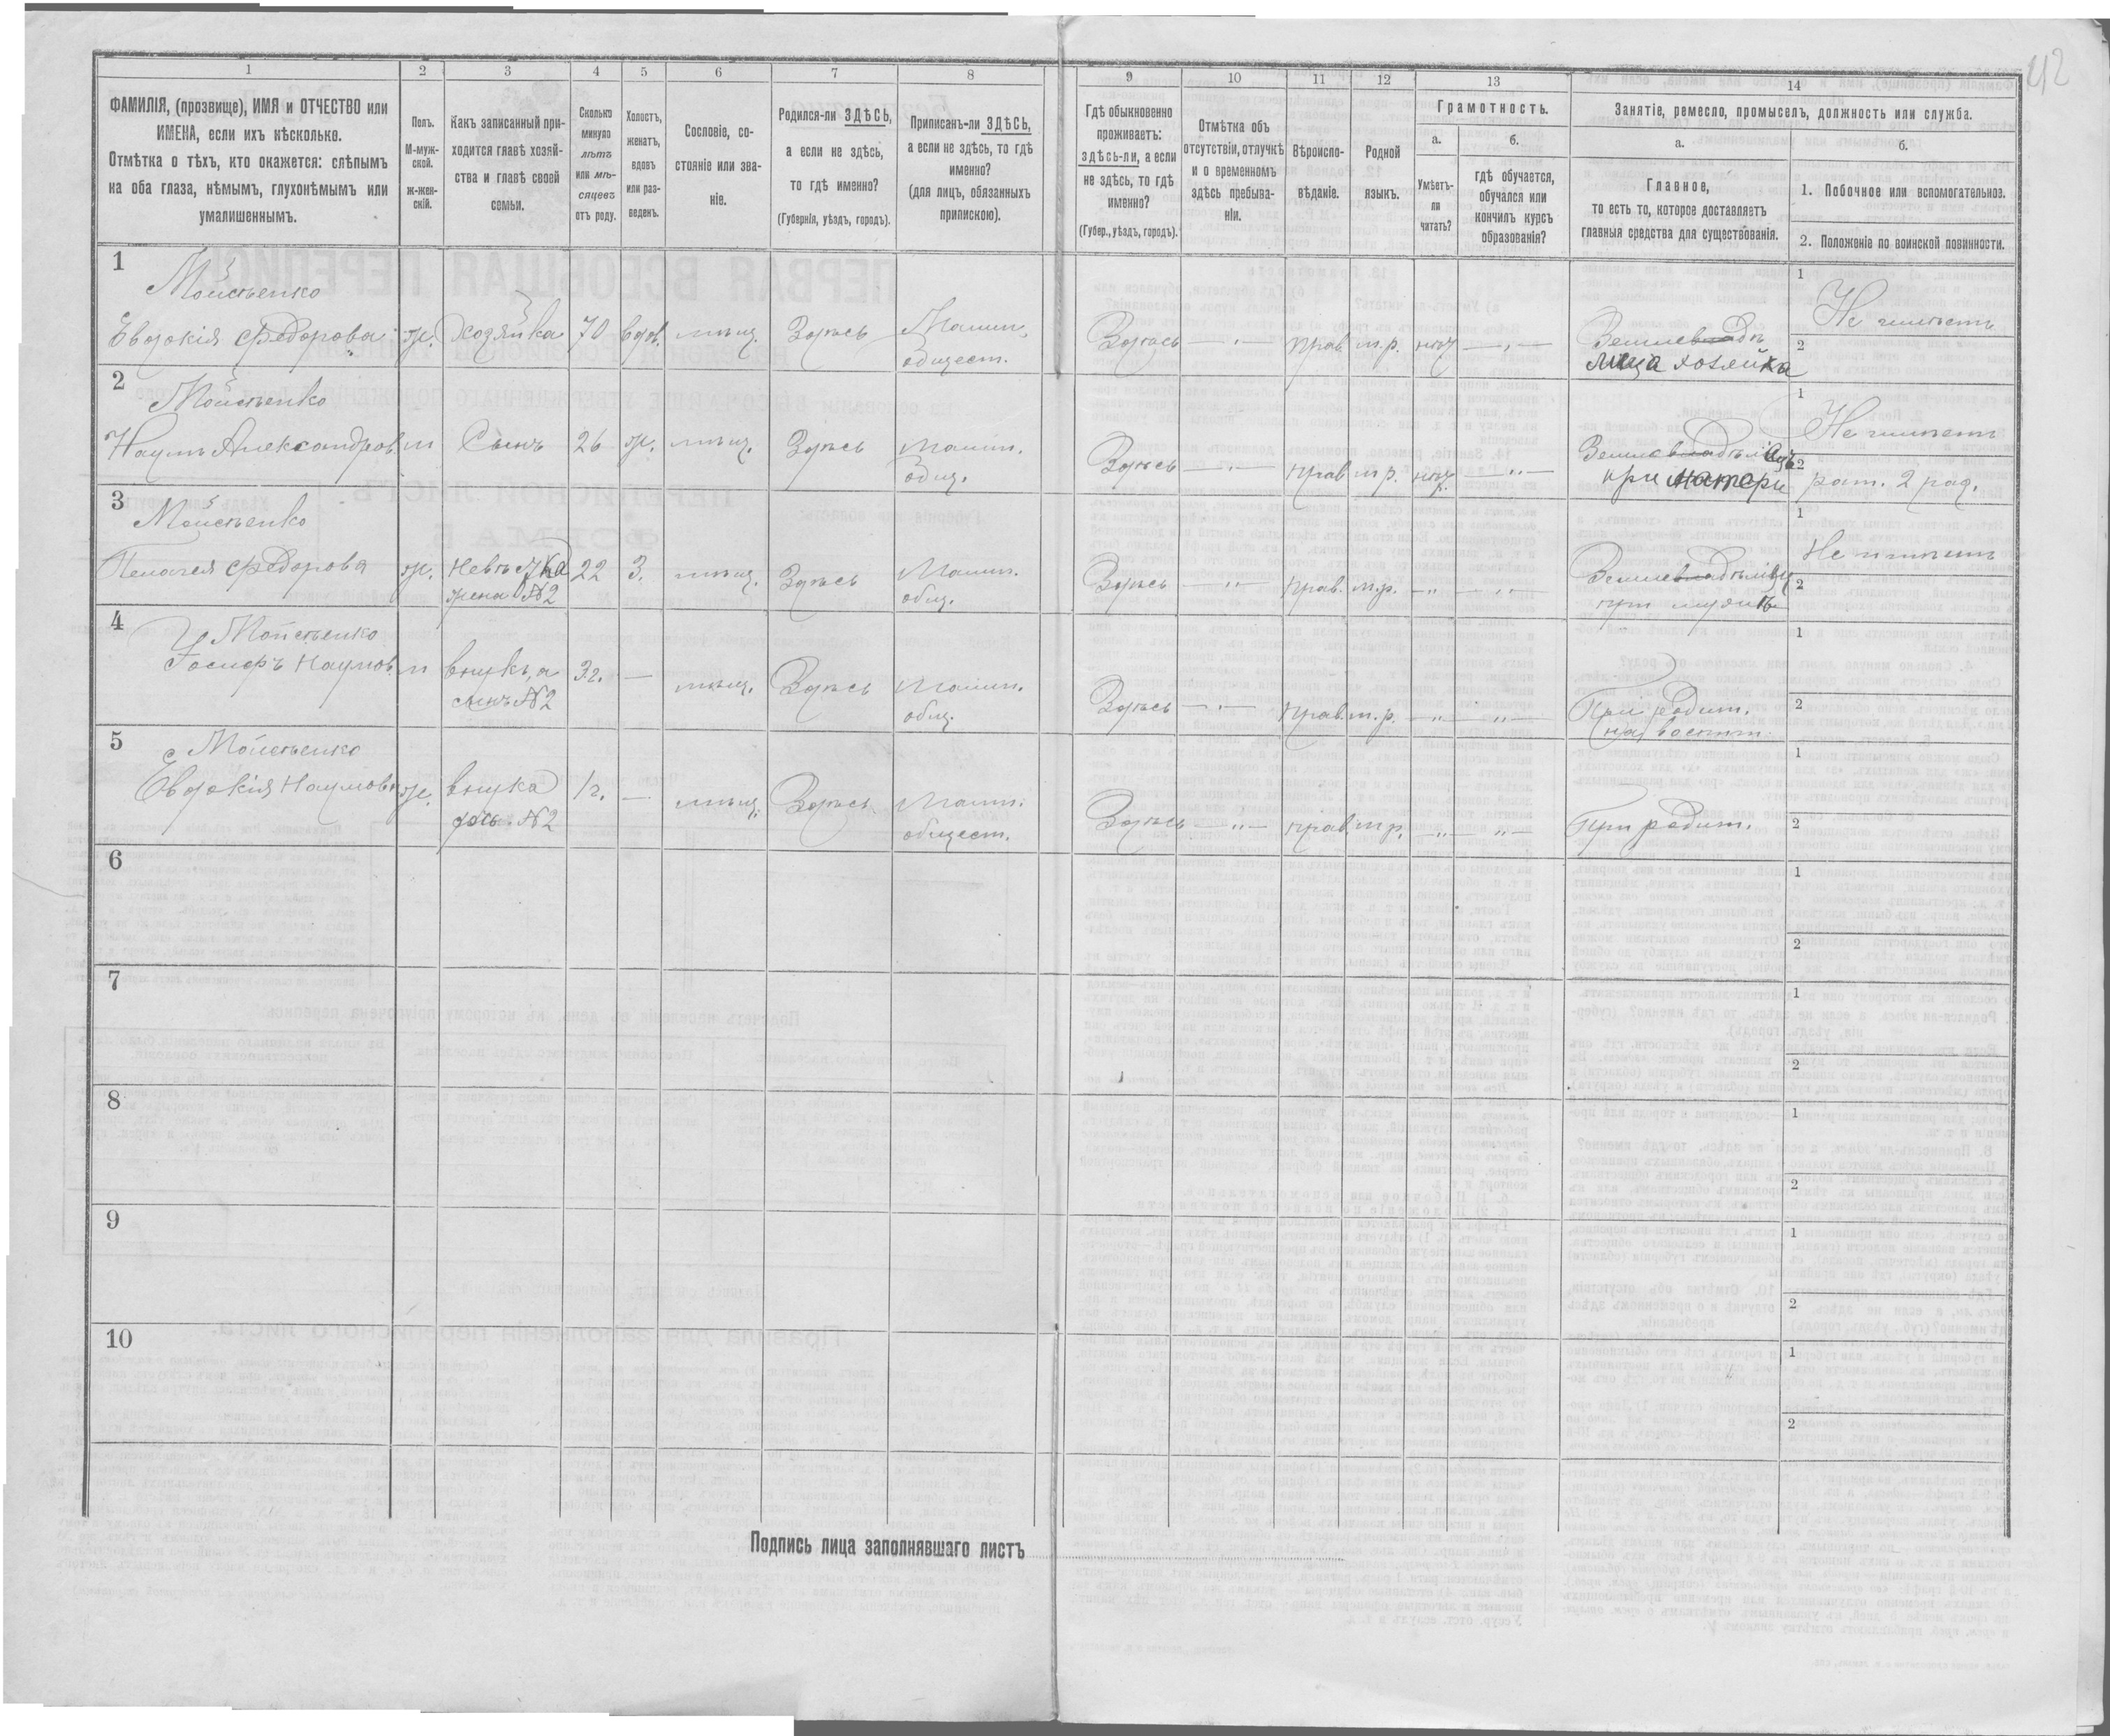 42
1
2
3
4
5
6
7
8
9
10
11
12
13
14
ФАМИЛІЯ, (прозвище), ИМЯ и ОТЧЕСТВО или
ИМЕНА, если ихъ нѣсколько.
Отмѣтка о тѣхъ, кто окажется: слѣпымъ
на оба глаза, нѣмымъ, глухонѣмымъ или
умалишеннымъ.
Полъ.
М-муж-
ской.
ж-жен-
скій.
Какъ записанный при-
ходится главѣ хозяй-
ства и главѣ своей
семьи.
Сколько
минуло
лѣтъ
или мѣ-
сяцевъ
отъ роду.
Холостъ,
женатъ,
вдовъ
или раз-
веденъ.
Сословіе, со-
стояніе или зва-
ніе.
Родился-ли ЗДѢСЬ,
а если не здѣсь,
то гдѣ именно?
(Губернія, уѣздъ, городъ).
Приписанъ-ли ЗДѢСЬ,
а если не здѣсь, то гдѣ
именно?
(для лицъ, обязанныхъ
припискою).
Гдѣ обыкновенно
проживаетъ:
здѣсь-ли, а если
не здѣсь, то гдѣ
именно?
(Губер., уѣздъ, городъ).
Отмѣтка объ
отсутствіи, отлучкѣ
и о временномъ
здѣсь пребыва-
ніи.
Вѣроиспо-
вѣданіе.
Родной
языкъ.
Грамотность.
а.
Умѣетъ-
ли
читать?
б.
гдѣ обучается,
обучался или
кончилъ курсъ
образованія?
Занятіе, ремесло, промыселъ, должность или служба.
а.
Главное,
то есть то, которое доставляетъ
главныя средства для существованія.
б.
1. Побочное или вспомогательное.
2. Положеніе по воинской повинности.
1
Мойсѣенко
Евдокія Федорова
ж.
Хозяйка
70
вдов.
мѣщ.
Здѣсь
общест.
Здѣсь
—"—
прав.
м.р.
нѣт
—"—
лица хозяйка
1
Не имѣетъ
2
2
Мойсѣенко
Наумъ Александров.
м
Сынъ
26
ж.
мѣщ.
Здѣсь
общ.
Здѣсь
—"—
прав
м р.
нѣт.
—"—
Землевладѣлицъ
при матери
1
Не имѣетъ
2
рат. 2 раз.
3
Мойсѣенко
Пелагея Федорова
ж.
Невѣстка
жена №2
22
З.
мѣщ.
Здѣсь
общ.
Здѣсь
—"—
прав.
м.р.
—"—
—"—
при мужѣ
1
Не имѣетъ
2
4
Мойсѣенко
Іосифъ Наумов.
м
внукъ, а
сынъ №2
3 г.
—
мѣщ.
Здѣсь
общ.
Здѣсь
—"—
прав.
м.р.
—"—
—"—
При родит.
1
2
5
Мойсѣенко
Евдокія Наумова
ж.
внука
дочь №2
1 г.
—
мѣщ.
Здѣсь
общест.
Здѣсь
—"—
прав.
м р.
—"—
—"—
При родит.
1
2
6
1
2
7
1
2
8
1
2
9
1
2
10
1
2
Подпись лица заполнявшаго листъ